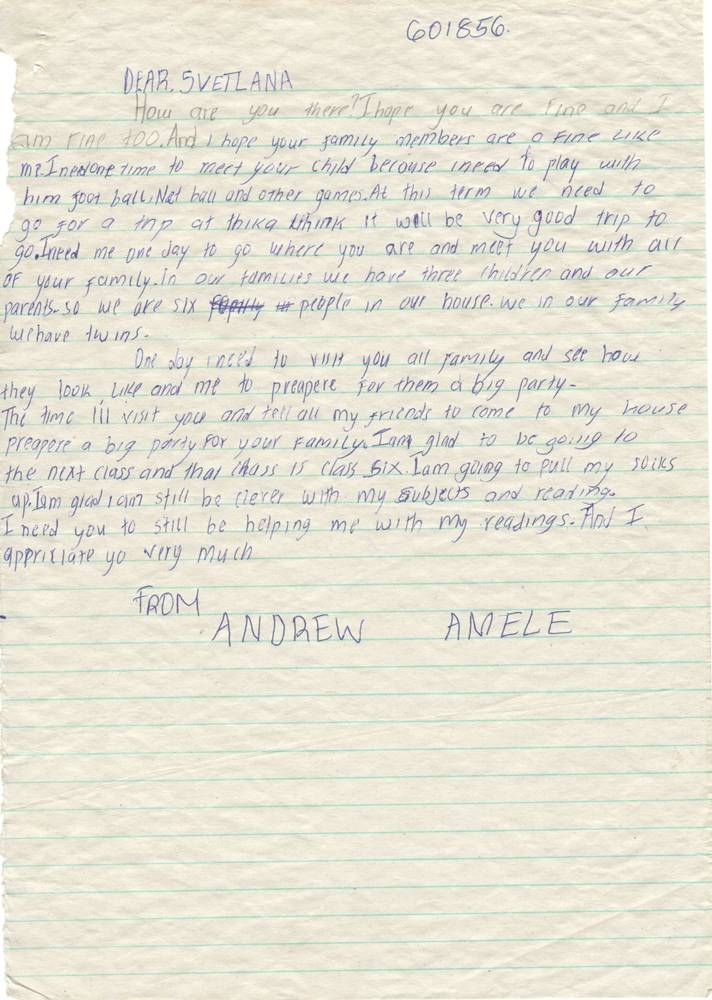 601856.
DEAR. SVETLANA
How are you there? I hope you are Fine and I
am Fine too. And i hope your family members are a Fine Like
me. I need one time to meet your child because ineed to play with
him foot ball, Net ball and other games. At this term we need to
go for a trip at thika ithink it will be very good trip to
go. Ineed me one day to go where you are and meet you with all
OF your family. in our families we have three children and our
parents. so we are six people in our house. we in our family
wehave twins.
One day i need to visit you all family and see how
they look Like and me to preapere for them a big party.
The time I'll visit you and tell all my friends to come to my house
preapere a big party For your Family. Iam glad to be going to
the next class and that class is class six. Iam going to pull my socks
up. Iam glad iam still be clever with my subjects and reading.
I need you to still be helping me with my readings. And I
appriciate yo very much
FROM
ANDREW AMELE